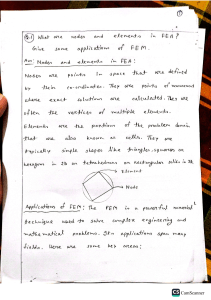 ①
Q.1 What are nodes and elements in FEA?
Give some applications of FEM.
Ans: Nodes and elements in FEA:
Nodes are points in space that are defined
by their co-ordinates. They are points of
where exact solutions are calculated. They are
often the vertices of multiple elements.
Elements are the partions of the problem domain
that are also known as cells. They are
typically simple shapes like triangles, squares or
hexagons in 2D or tetrahedrons or rectangular solids in 3D.
Element
Node
Applications of FEM: The FEM is a powerful numerical
technique used to solve complex engineering and
mathematical problems. Its applications span many
fields. Here are some key areas:
CS CamScanner